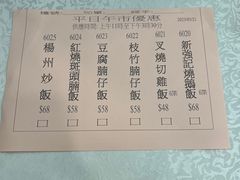 平日午市優惠
2023/03/21
供應時間:上午11時至下午3時30分
6025
楊州炒飯
$68
6024
紅燒斑頭腩飯
$68
6023
豆腐腩仔飯
$58
6022
枝竹腩仔飯
$58
6021
叉燒切雞飯
$48
6020
新強記燒鵝飯
$68